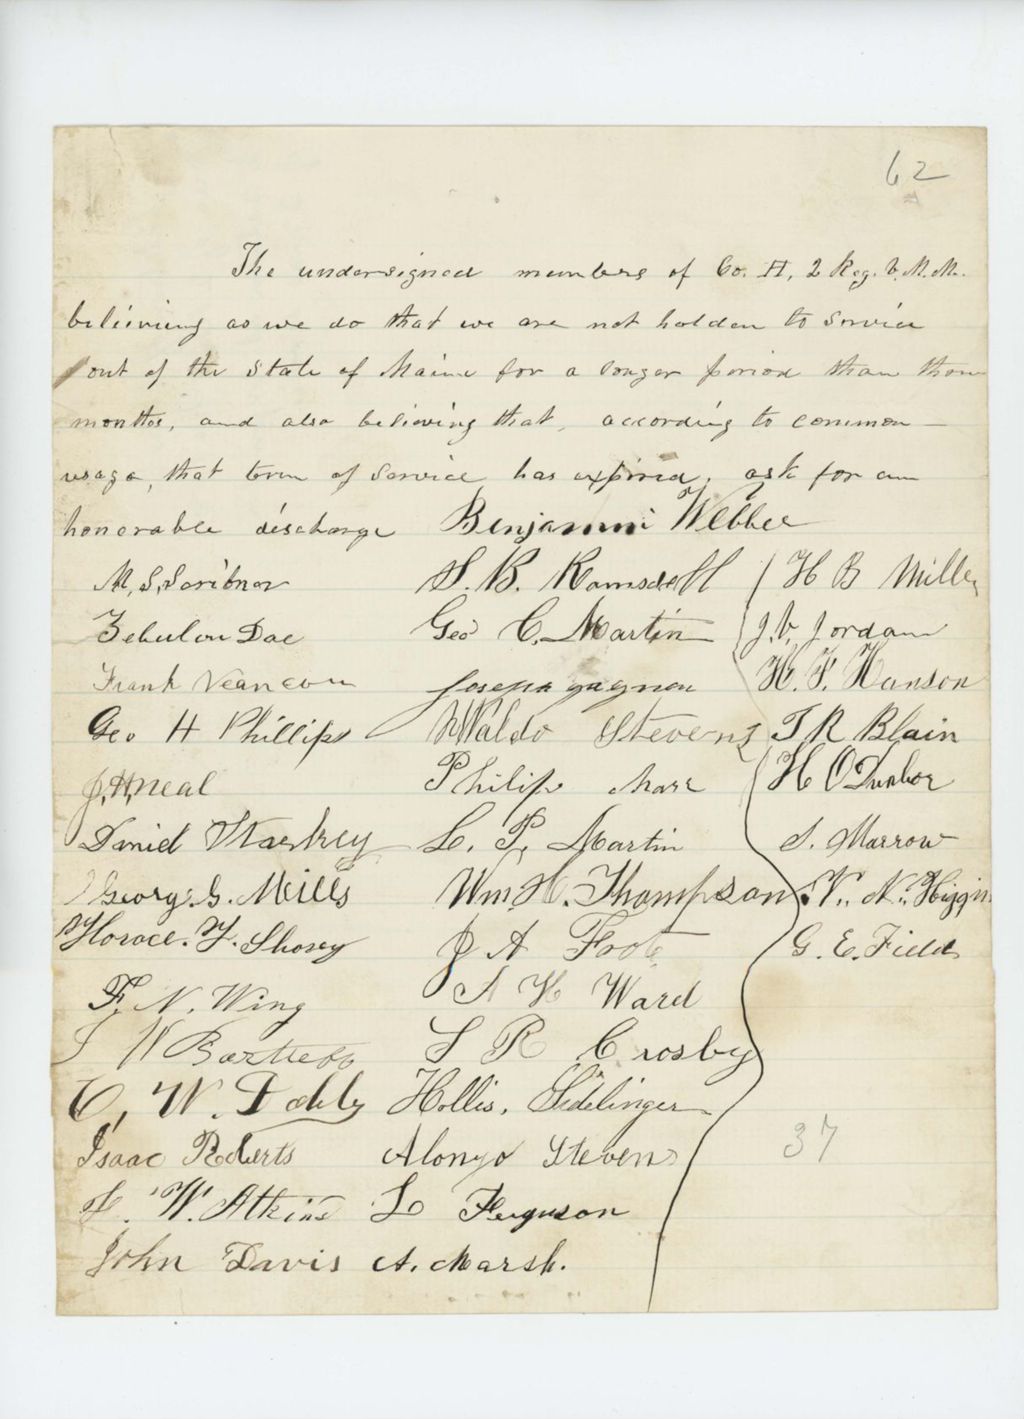 62
The undersigned members of Co. H, 2 Reg. V. M. M.
believing as we do that we are not holden to service
out of the State of Maine for a longer period than three
months, and also believing that, according to common
usage, that term of service has expired, ask for an
honorable discharge Benjamin Webber
M. S. Scribner S. B. Ramsdell H B Miller
Zebulon Doe Geo C. Martin J. V. Jordan
Frank Joseph Gagnon H. F. Hanson
Geo H Phillips Waldo Stevens T R Blain
J. H. Neal Philip Marr H O Dunbar
Daniel Starkey L. P. Martin S. Marrow
George G. Mills Wm H. Thompson V. N. Higgins
Horace Y. Shorey J A Frost G. E. Field
F. N. Wing A H Ward
S W Bartlett S R Crosby
C. W. Dolly Hollis Sidelinger
Isaac Roberts Alonzo Stevens
37
F. W. Atkins L Ferguson
John Davis A. Marsh.